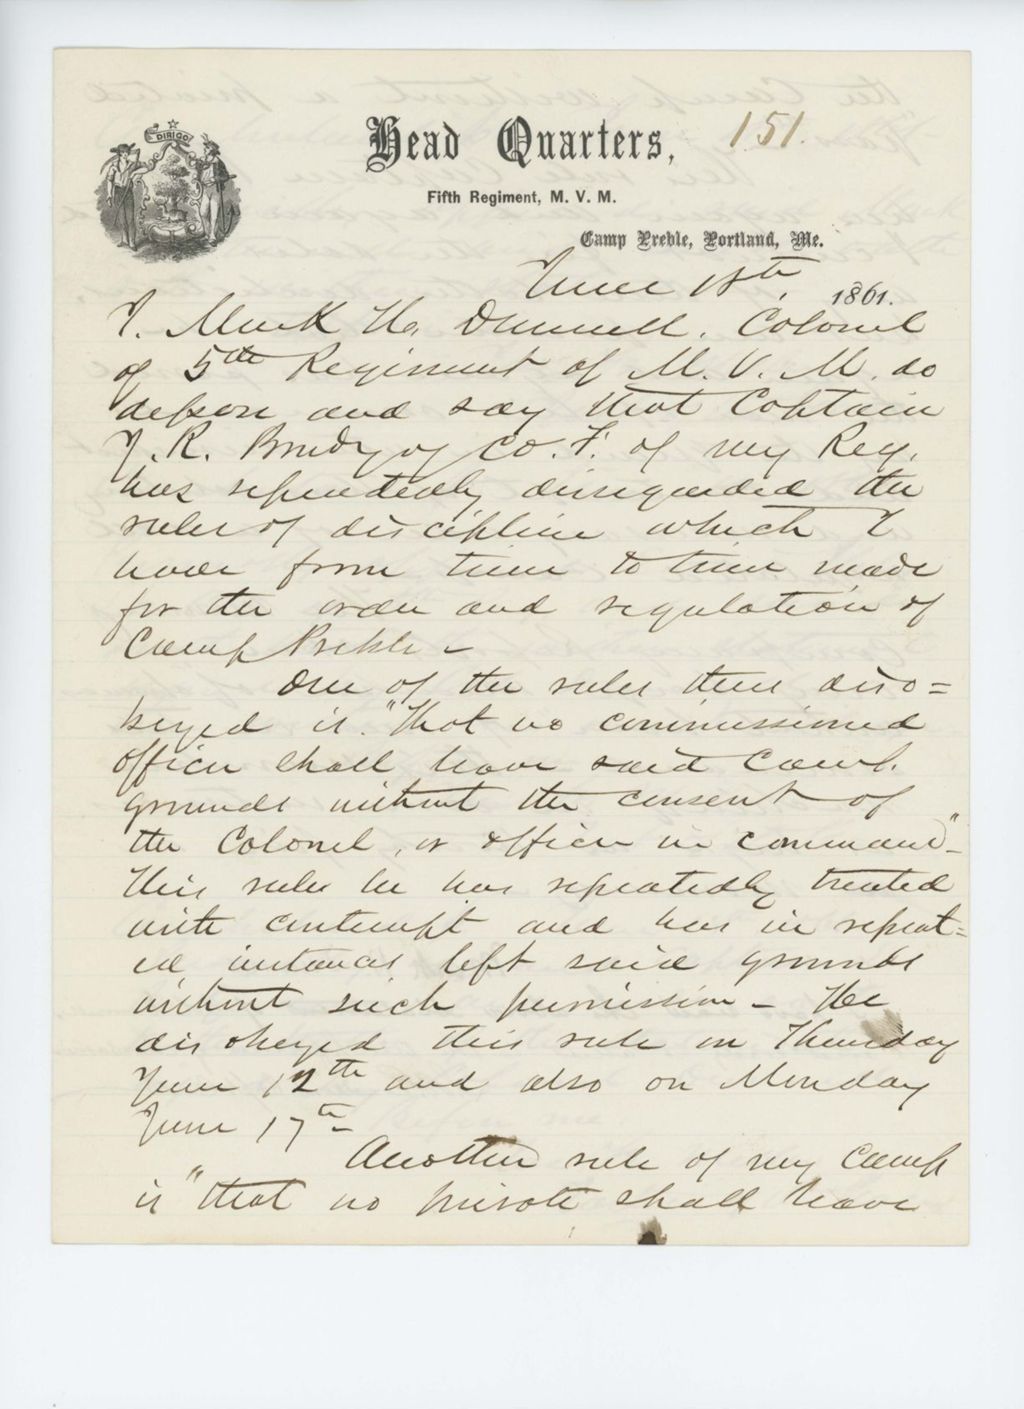 DIRIGO
Head Quarters, 151.
Fifth Regiment, M. V. M.
Camp Preble, Portland, Me.
June 18th, 1861.
I. Mark H. Dunnell. Colonel
of 5th Regiment of M. V. M. do
depose and say that Captain
J. R. Brady of Co. F. of my Reg.
has repeatedly disregarded the
rules of discipline which I
have from time to time made
for the order and regulation of
Camp Preble –
One of the rules thus diso=
beyed is. "That no commissioned
officer shall leave said Camp.
grounds without the consent of
the Colonel, or officer in command" –
This rule he has repeatedly treated
with contempt and has in repeat=
ed instances left said grounds
without such permission – He
disobeyed this rule on Thursday
June 12th and also on Monday
June 17th –
Another rule of my Camp
is "that no private shall leave